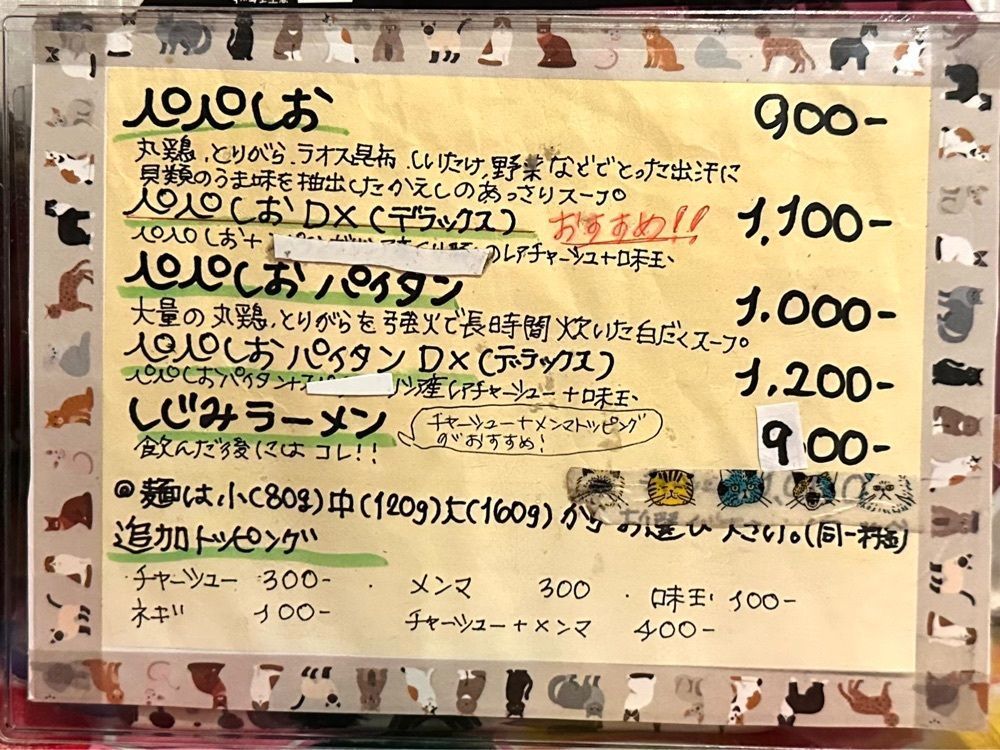 ペペしお 900-
丸鶏、とりがら、ラオス昆布、しいたけ、野菜などでとった出汁に
貝類のうま味を抽出したかえしのあっさりスープ。
ペペしおDX(デラックス) おすすめ!! 1,100-
ペペしお+ のレアチャーシュ+味玉、
ペペしおパイタン 1.000-
大量の丸鶏、とりがらを強火で長時間炊いた白だくスープ。
ペペしおパイタンDX(デラックス) 1,200-
ペペしおパイタン+ス 産レアチャーシュー+味玉、
しじみラーメン 900-
飲んだ後にはコレ!!
チャーシュー+メンマトッピング
がおすすめ!
◎麺は小(80g)中(120g)大(160g)からお選び下さい。(同一料金)
追加トッピング
チャーシュー 300- ・メンマ 300 ・味玉 100-
ネギ 100- チャーシュー+メンマ 400-